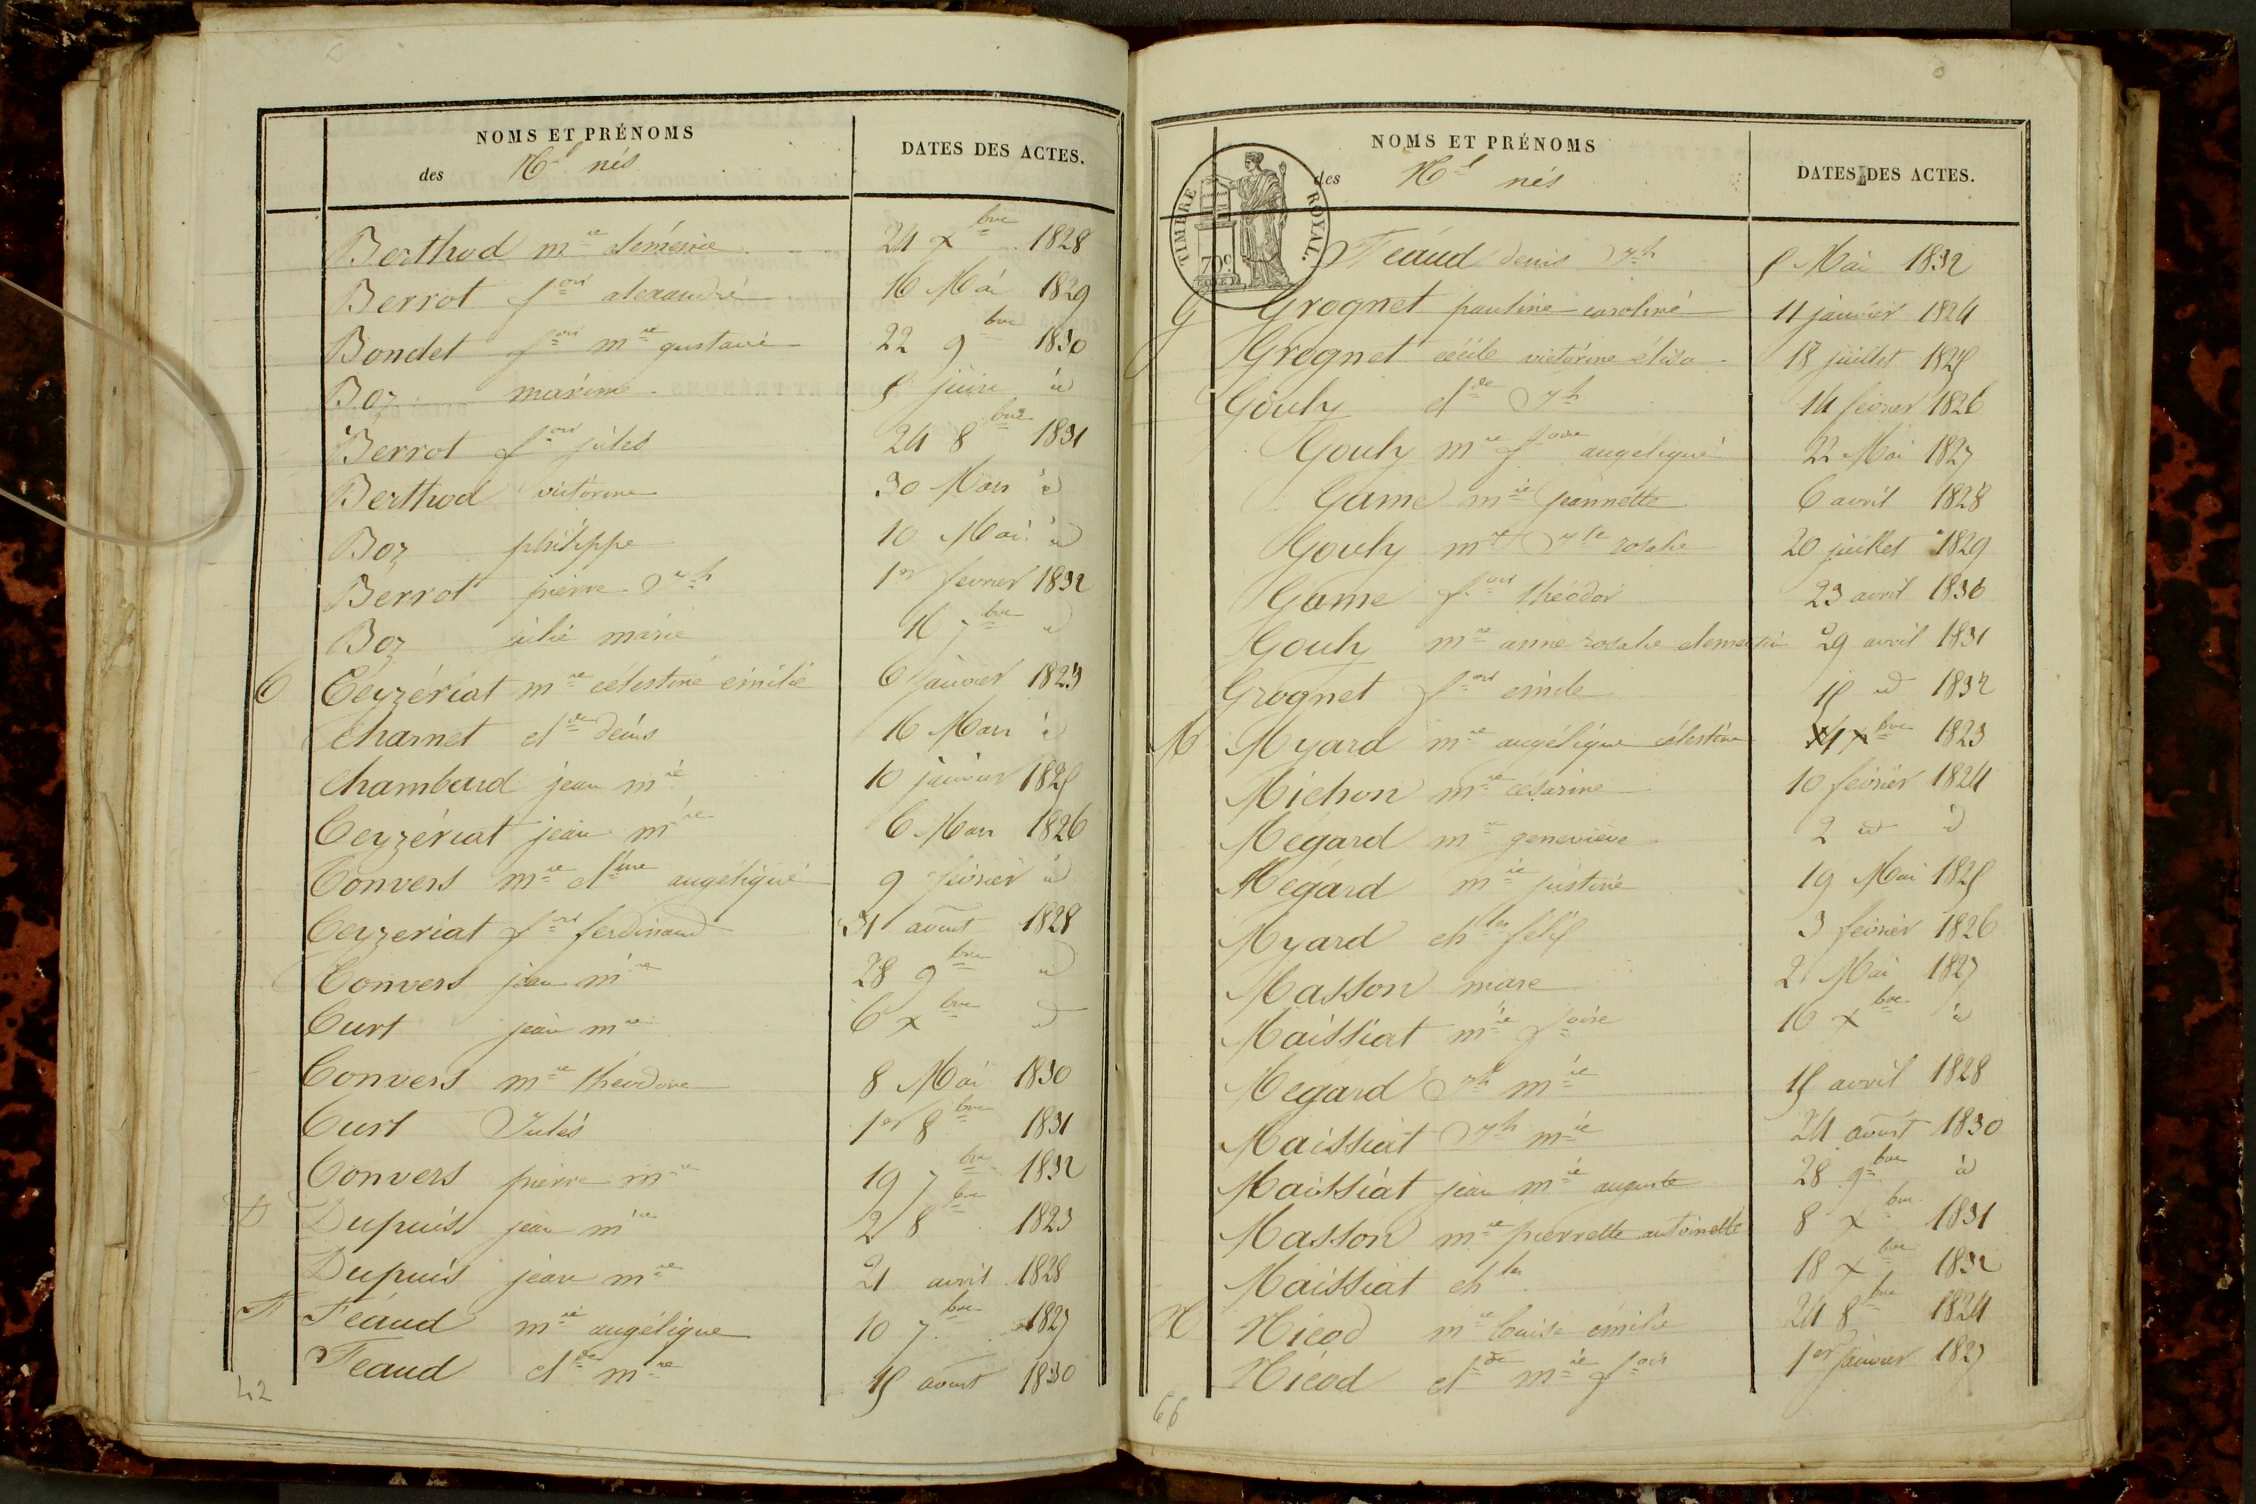 NOMS ET PRÉNOMS
des Nl nés
DATES DES ACTES.
Berthod mie clémence 24 xbre 1828
Berrot fois alexandre 16 Mai 1829
Bondet fois mie gustave 22 9bre 1830
Boz maxime 5 juin id
Berrot fois jules 24 8bre 1831
Berthod victorine 30 Mars id
Boz philippe 10 Mai id
Berrot pierre Jph 1er fevrier 1832
Boz julie marie 16 7bre id
C Ceyzériat mie célestine émilie 6 janvier 1823
Charnet clde denis 16 Mars id
Chambard jean mie 10 janvier 1825
Ceyzériat jean mie 6 Mars 1826
Convers mie cltine angélique 9 février id
Ceyzeriat fois ferdinand 31 aout 1828
Convers jean mie 28 9bre id
Curt jean mie 6 xbre id
Convers mie théodore 8 Mai 1830
Curt Jules 1er 8bre 1831
Convers pierre mie 19 7bre 1832
D Dupuis jean mie 2 8bre 1823
Dupuis jean mie 21 avril 1828
F Féaud mie angélique 10 7bre 1827
Féaud clde mie 15 aout 1830
42
NOMS ET PRÉNOMS
des Nl nés
DATES DES ACTES.
TIMBRE ROYAL.
70c
Féaud denis Jph 5 Mai 1832
G Grognet pauline caroline 11 janvier 1824
Grognet cécile victorine éliza 18 juillet 1825
Gouly clde Jph 14 février 1826
Gouly mie foise angelique 22 Mai 1827
Game mie jeannette 6 avril 1828
Gouly mie Jphte rosalie 20 juillet 1829
Game fois théodor 23 avril 1830
Gouly mie anne rosalie clemence 29 avril 1831
Grognet fois emile 15 id 1832
M Myard mie angélique célestine xbre 1823
Michon mie césarine 10 février 1824
Mégard mie geneviève 2 id id
Mégard mie justine 19 Mai 1825
Myard chles félix 3 février 1826
Masson marc 2 Mai 1827
Maissiat mie foise 16 xbre id
Mégard Jph mie 15 avril 1828
Maissiat Jph mie 24 aout 1830
Maissiat jean mie auguste 28 9bre id
Masson mie pierrette antoinette 8 xbre 1831
Maissiat chles 18 xbre 1832
N Nicod mie louise émilie 24 8bre 1824
Nicod clde mie fois 1er janvier 1827
66